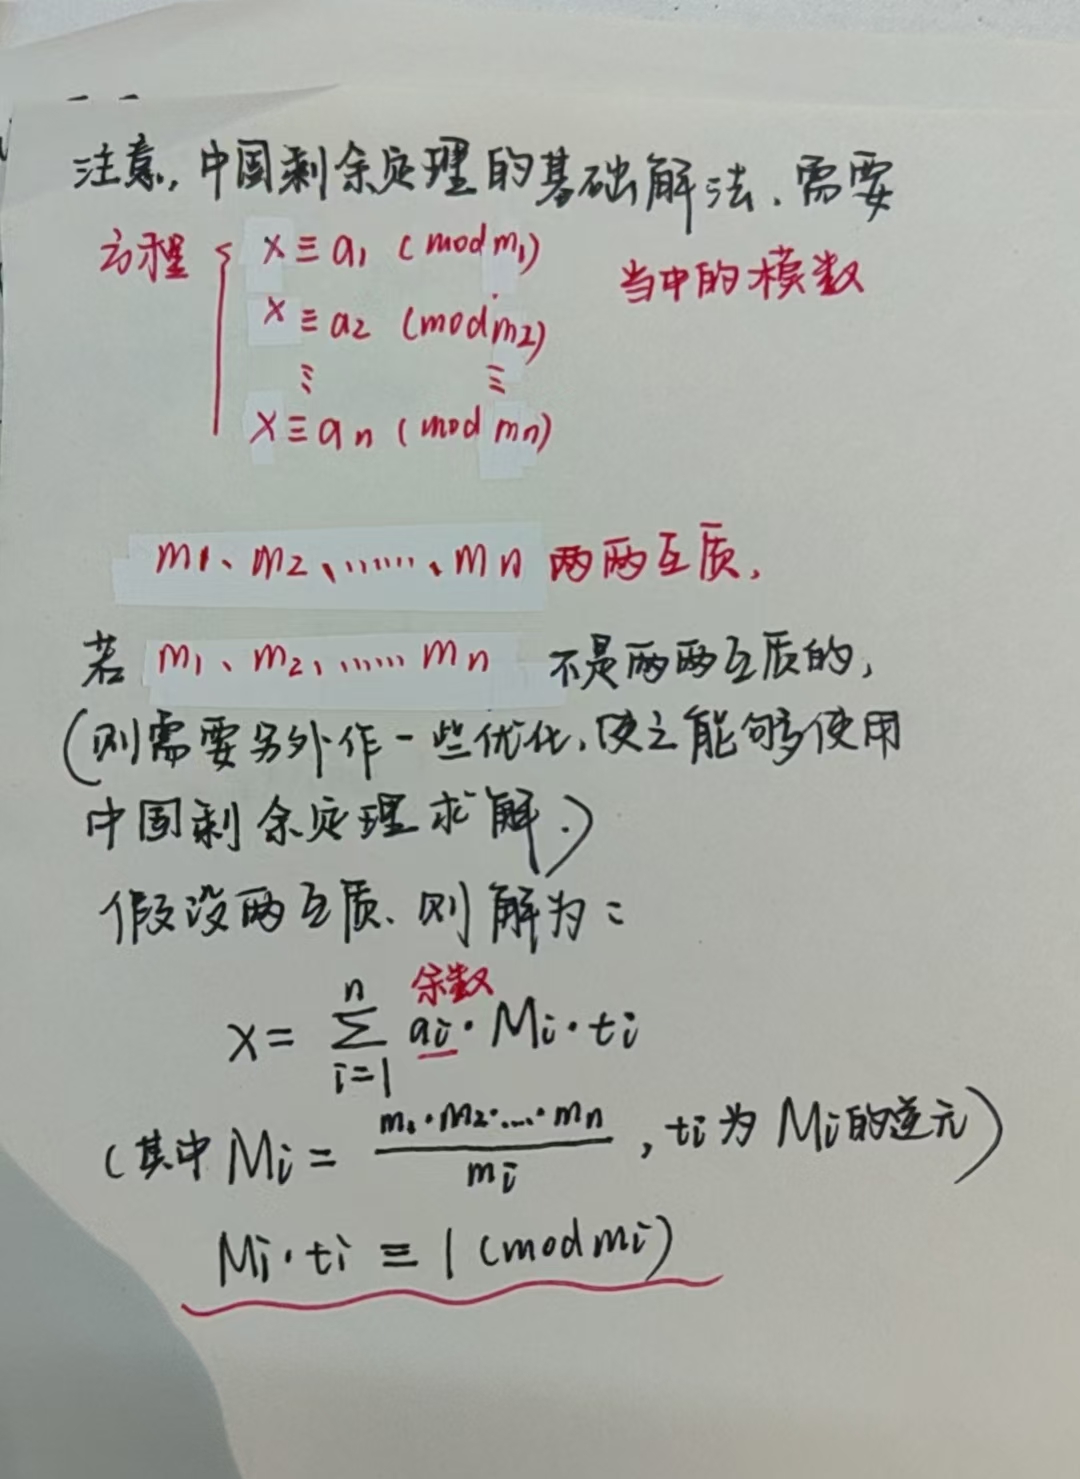 注意,中国剩余定理的基础解法、需要
方程 { x ≡ a₁ (mod m₁) 当中的模数
x ≡ a₂ (mod m₂)
⋮ ⋮
x ≡ aₙ (mod mₙ)
m₁、m₂、……、mₙ 两两互质.
若 m₁、m₂、…… mₙ 不是两两互质的,
(则需要另外作一些优化,使之能够使用
中国剩余定理求解.)
假设两互质、则解为:
余数
x = ∑ᵢ₌₁ⁿ aᵢ · Mᵢ · tᵢ
(其中 Mᵢ = (m₁·m₂·…·mₙ)/mᵢ , tᵢ 为 Mᵢ 的逆元)
Mᵢ · tᵢ ≡ 1 (mod mᵢ)